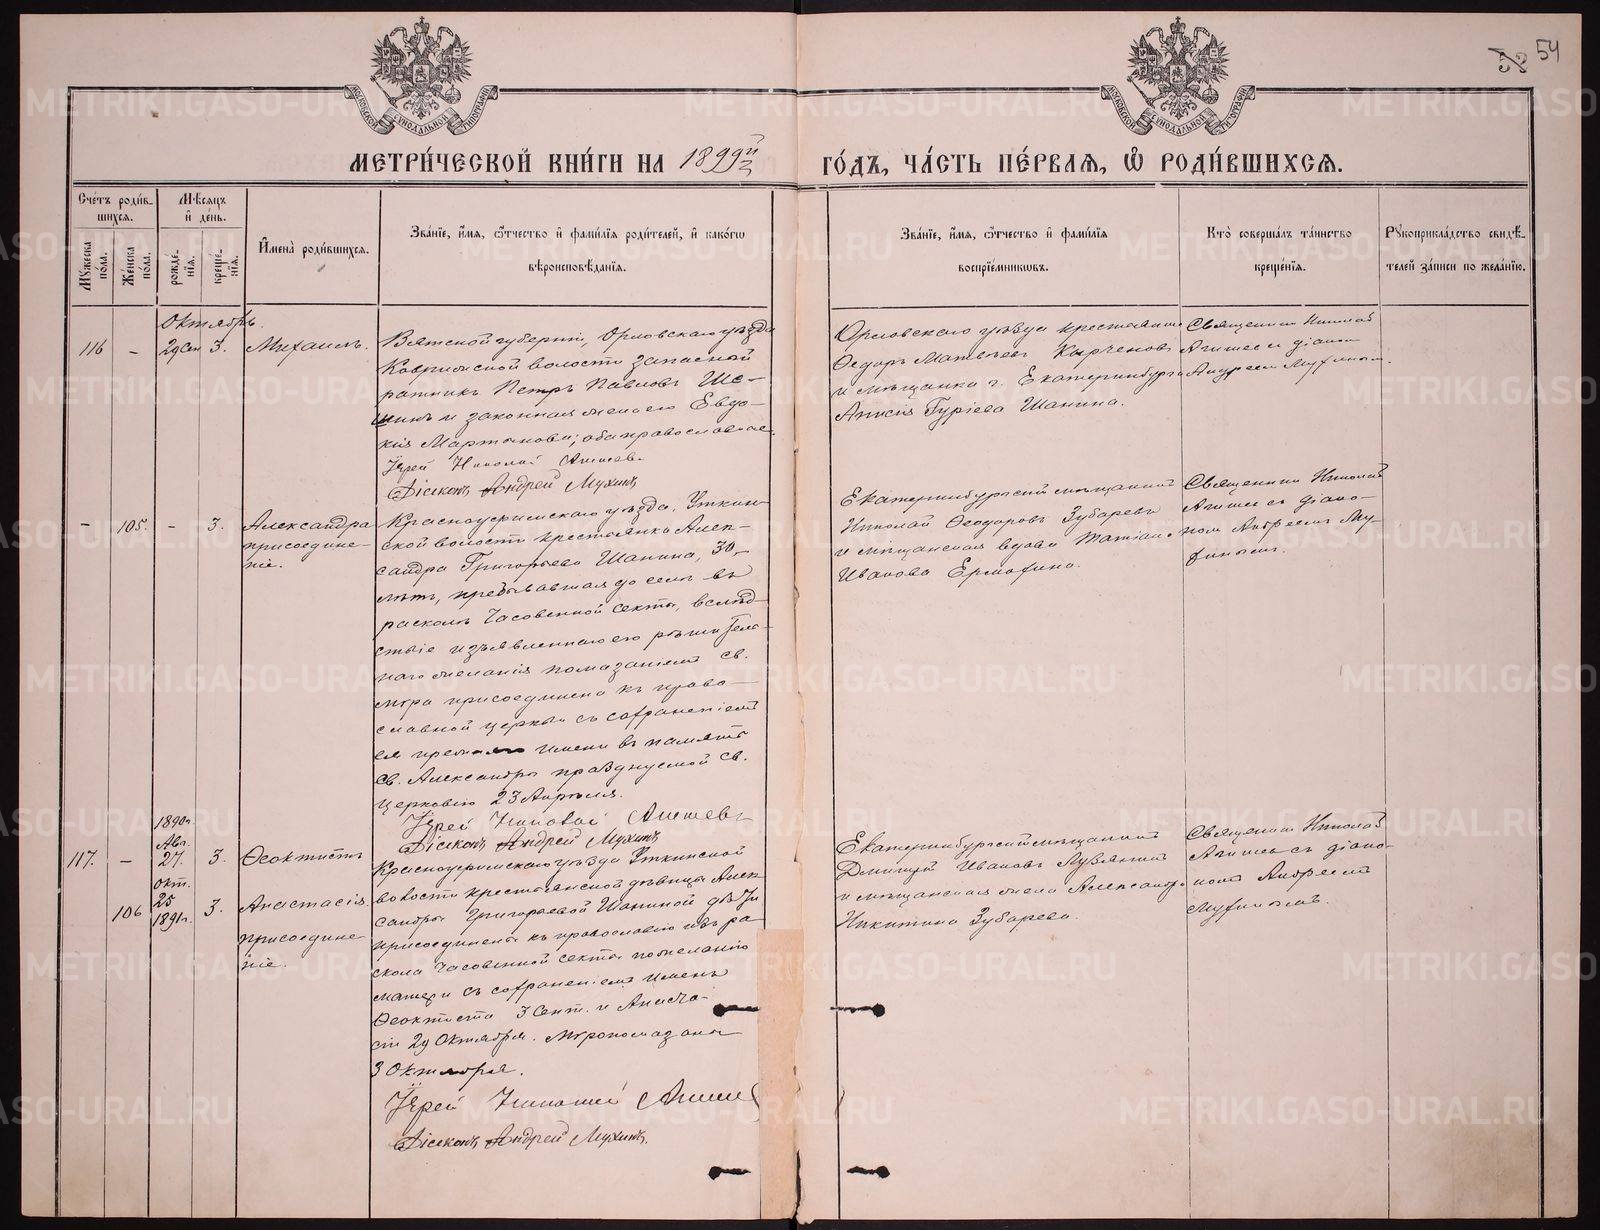 54
МЕТРИ́ЧЕСКОЙ КНИ́ГИ НА 1899й ГО́ДЪ, ЧА́СТЬ ПЕ́РВАЯ, Ѡ РОДИ́ВШИХСЯ.
Сче́тъ роди́в-
шихся.
Му́жеска по́ла.
Же́нска по́ла.
Мѣ́сяцъ
и де́нь.
рожде́-
нїя.
креще́-
нїя.
Имена̀ роди́вшихся.
Зва́нїе, и́мя, ѻ́тчество и фами́лїя роди́телей, и како́гѡ
вѣроисповѣ́данїя.
Зва́нїе, и́мя, ѻ́тчество и фами́лїя
воспрїе́мниковъ.
Кто̀ соверша́лъ та́инство
креще́нїя.
Рꙋкоприкла́дство свидѣ́-
телей за́писи по жела́нїю.
Октябрь.
116
–
29 Сен
3.
Михаилъ.
Вятской губерніи, Орловскаго уѣзда
волости запасной
ратникъ Петръ Павловъ Ше-
шинъ и законная жена его Евдо-
кія Мартынова; оба православные.
Іерей Николай
Діаконъ Андрей Мухинъ
Орловскаго уѣзда крестьянинъ
Ѳедоръ Матвѣевъ
и мѣщанка г. Екатеринбурга
Анисія Гуріева Шанина.
Священникъ Николай
съ діакон.
Андреемъ Мухинымъ.
–
105.
–
3.
Александра
присоедине-
ніе.
Красноуфимскаго уѣзда, Уткин-
ской волости крестьянка Алек-
сандра Григорьева Шанина, 30,-
лѣтъ, пребывавшая до селѣ въ
расколѣ Часовенной секты, вслѣд-
ствіе изъявленнаго ею рѣшитель-
наго желанія помазаніемъ св.
мѵра присоединена къ право-
славной церкви съ сохраненіемъ
ея имени въ память
св. Александры празднуемой св.
церковію 23 Апрѣля.
Іерей Николай
Діаконъ Андрей Мухинъ
Екатеринбургскій мѣщанинъ
Николай Ѳеодоровъ Зубаревъ
и мѣщанская вдова
Иванова Ермохина.
Священникъ Николай
съ діако-
номъ Андреемъ Му-
хинымъ.
117.
–
1890г.
Авг.
27.
3.
Ѳеоктистъ
106
Окт.
25
1891г.
3.
Анастасія
присоедине-
ніе.
Красноуфимскаго уѣзда Уткинской
волости крестьянской дѣвицы Алек-
сандры Григорьевой Шаниной дѣти
присоединены къ православію изъ ра-
скола Часовенной секты по желанію
матери съ сохраненіемъ именъ
Ѳеоктиста 3 Сент. и Анаста-
сіи 29 Октября. Мѵропомазаны
3 Октября.
Іерей Николай
Діаконъ Андрей Мухинъ.
Екатеринбургскій мѣщанинъ
Дмитрій Ивановъ
и мѣщанская жена Александра
Никитина Зубарева.
Священникъ Николай
съ діако-
номъ Андреемъ
Мухинымъ.
METRIKI.GASO-URAL.RU